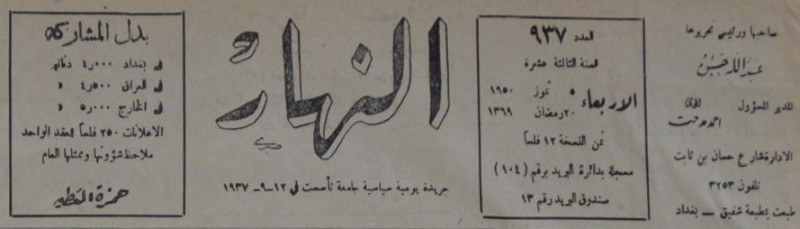 صاحبها ورئيس تحريرها
عبدالله حسن
المدير المسؤول المحامي
احمد مدحت
الادارة شارع حسان بن ثابت
تلفون ٣٢٥٣
طبعت بمطبعة شفيق — بغداد
العدد ٩٣٧
السنة الثالثة عشرة
الاربعاء ٥ تموز ١٩٥٠
٢٠ رمضان ١٣٦٩
ثمن النسخة ١٢ فلساً
مسجلة بدائرة البريد برقم (١٠٤)
صندوق البريد رقم ١٣
النهار
جريدة يومية سياسية جامعة تأسست في ١٢-٩-١٩٣٧
بدل المشاركة
في بغداد ٤٫٠٠٠ دنانير
في العراق ٤٫٥٠٠ »
في الخارج ٥٫٠٠٠ »
الاعلانات ٢٥٠ فلساً العقد الواحد
ملاحظ شؤونها وممثلها العام
حمزة